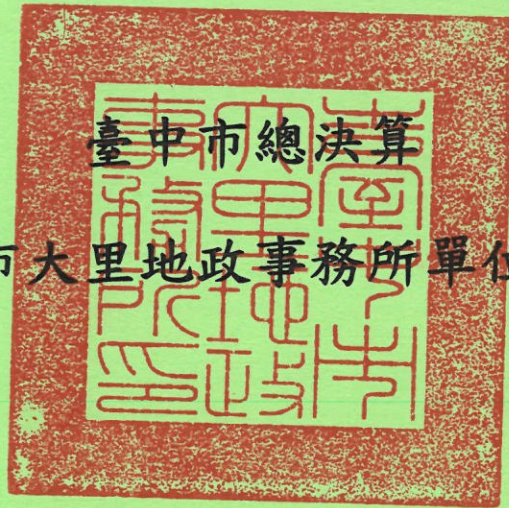 臺中市總決算
市大里地政事務所單位
臺中市
大里地政
事務所印